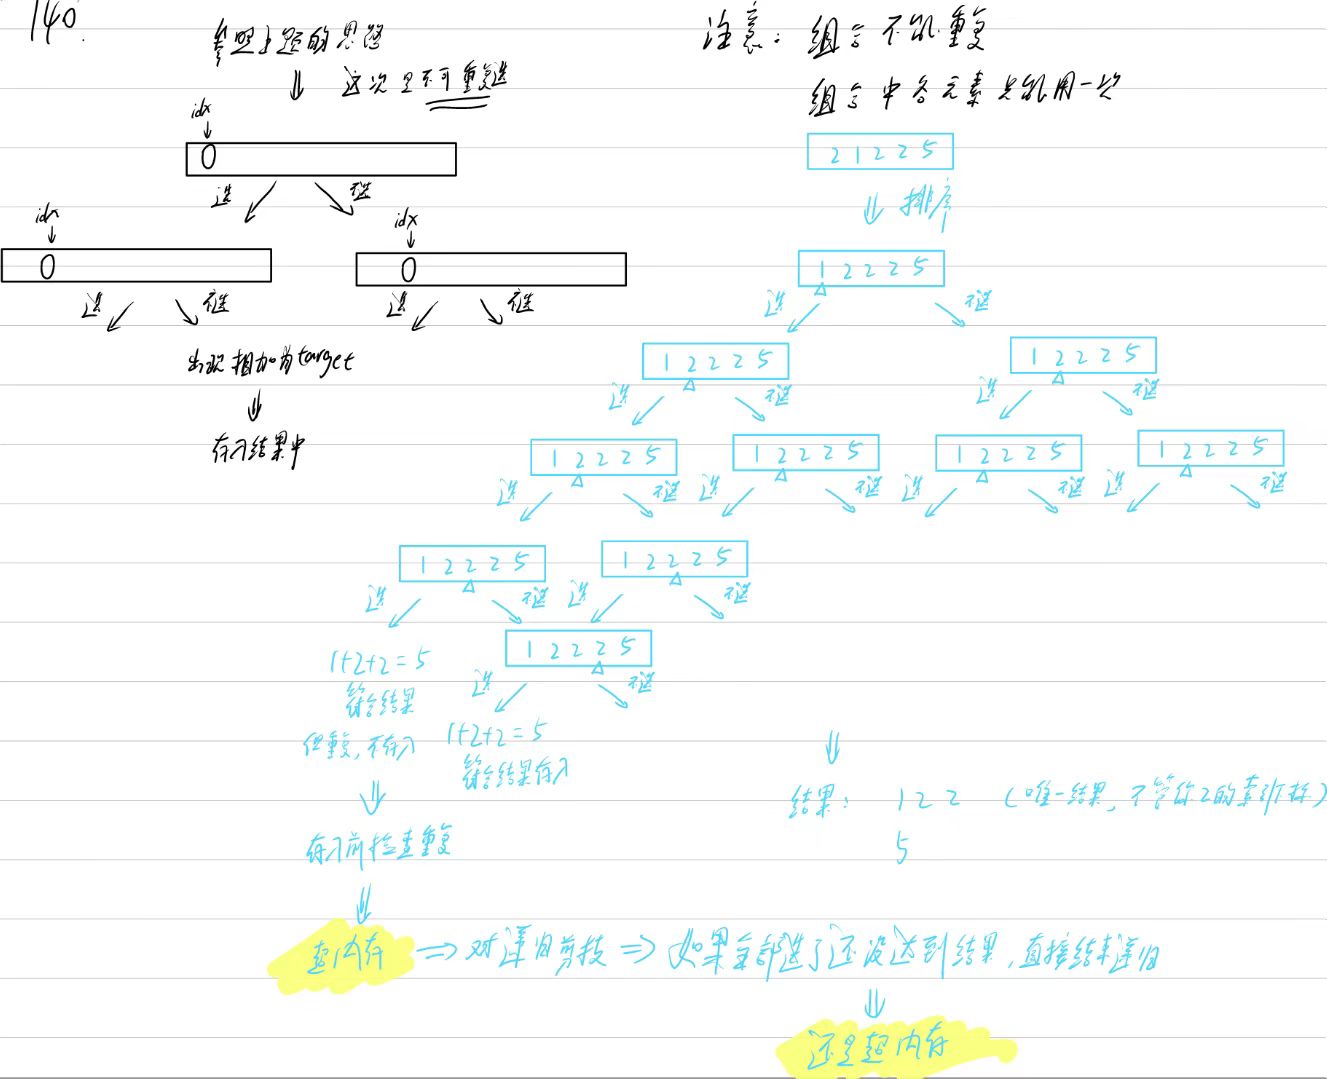 140.
参照上题的思路
这次是不可重复选
idx
0
选 不选
idx
0
选 不选
idx
0
选 不选
出现相加为target
存入结果中
注意：组合不能重复
组合中各元素只能用一次
2 1 2 2 5
排序
1 2 2 2 5
选 不选
1 2 2 2 5
1 2 2 2 5
选 不选
选 不选
1 2 2 2 5
1 2 2 2 5
1 2 2 2 5
1 2 2 2 5
选 不选
选 不选
选 不选
选 不选
1 2 2 2 5
1 2 2 2 5
选 不选
选 不选
1 2 2 2 5
选 不选
1+2+2=5
符合结果
但重复，不存入
1+2+2=5
符合结果存入
存入前检查重复
结果： 1 2 2 (唯一结果，不管你2的索引)
5
超内存 ⇒ 对递归剪枝 ⇒ 如果全部选了还没达到结果，直接结束递归
还是超内存